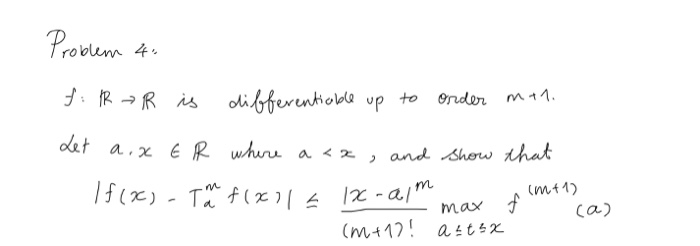 Problem 4.
f: ℝ → ℝ is differentiable up to order m+1.
Let a, x ∈ ℝ where a < x, and show that
|f(x) - T_a^m f(x)| ≤ \frac{|x-a|^m}{(m+1)!} \max_{a≤t≤x} f^{(m+1)}(a)